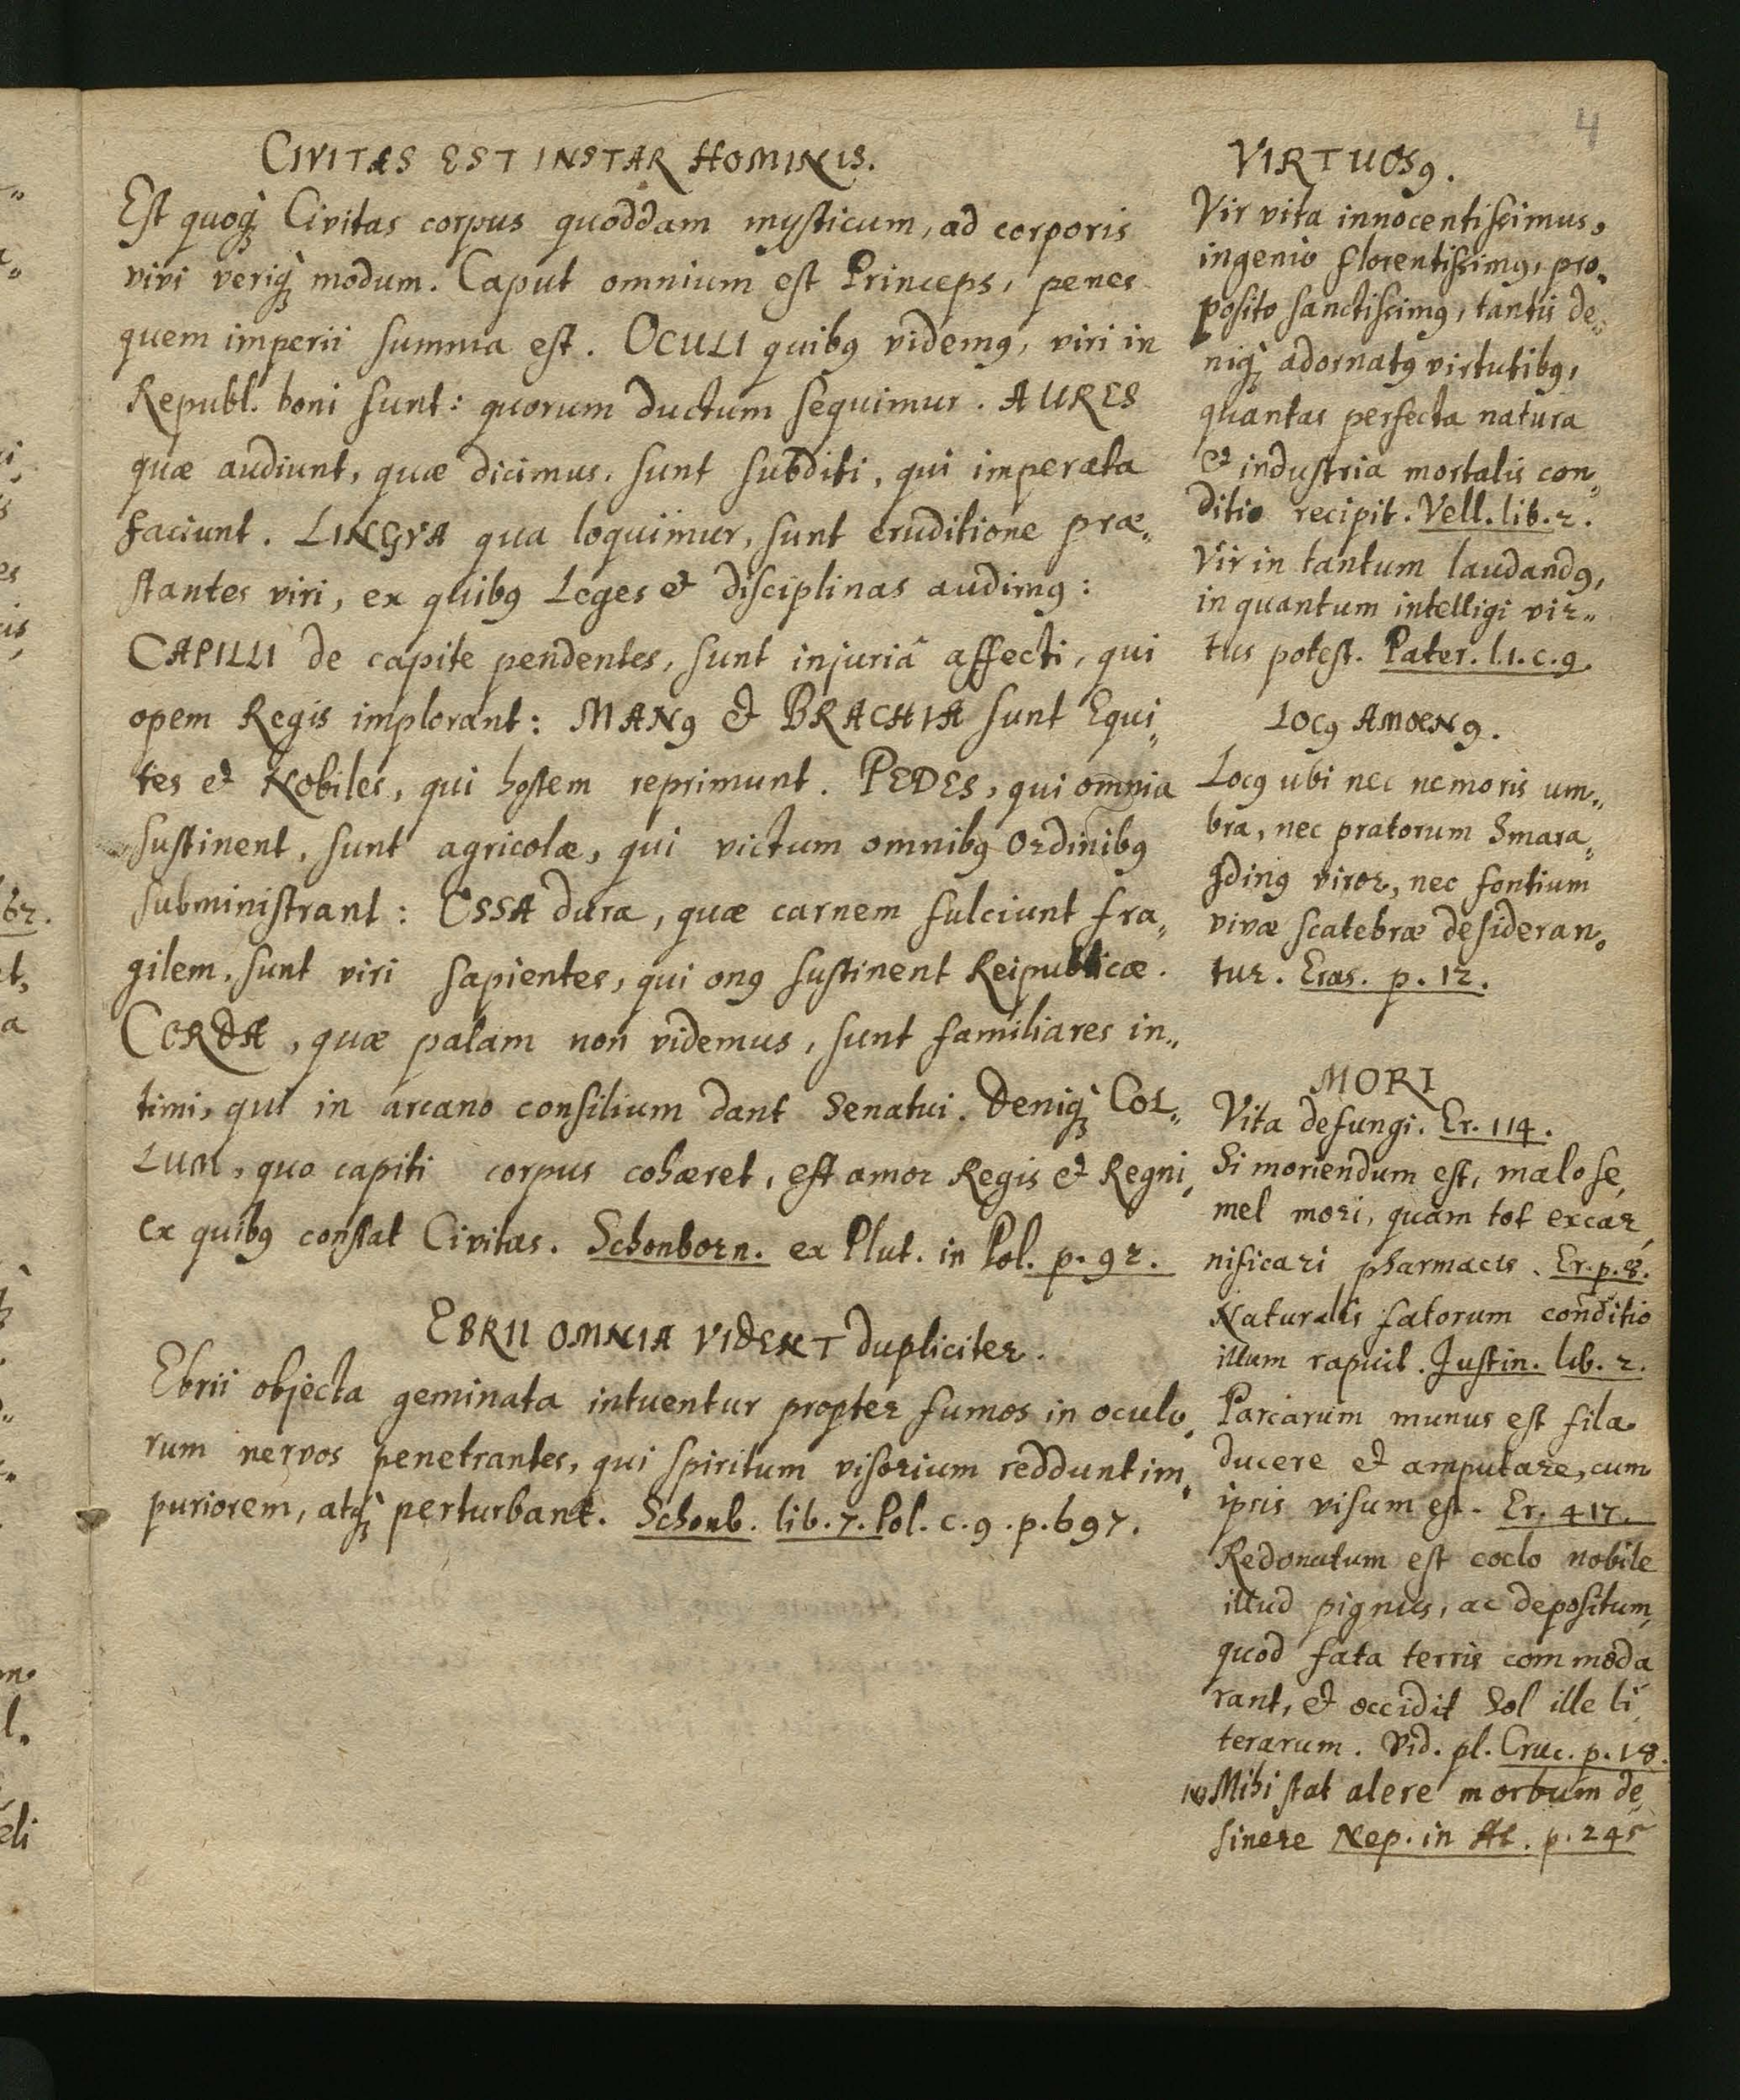 4
CIVITAS EST INSTAR HOMINIS.
Est quoq; Civitas corpus quoddam mysticum, ad corporis
vivi veriq; modum. Caput omnium est Princeps, penes
quem imperii summa est. OCULI quibꝰ videmꝰ, viri in
Republ. boni sunt: quorum ductum sequimur. AURES
quæ audiunt, quæ dicimus, sunt subditi, qui imperata
faciunt. LINGVA qua loquimur, sunt eruditione præ„
stantes viri, ex quibꝰ Leges et disciplinas audimꝰ:
CAPILLI de capite pendentes, sunt injuriâ affecti, qui
opem Regis implorant: MANꝰ et BRACHIA sunt Equi„
tes et Nobiles, qui hostem reprimunt. PEDES, qui omnia
sustinent, sunt agricolæ, qui victum omnibꝰ Ordinibꝰ
subministrant: OSSA dura, quæ carnem fulciunt fra„
gilem, sunt viri sapientes, qui onꝰ sustinent Reipublicæ.
CORDA, quæ palam non videmus, sunt familiares in„
timi, qui in arcano consilium dant Senatui. Deniq; COL„
LUM, quo capiti corpus cohæret, est amor Regis et Regni,
ex quibꝰ constat Civitas. Schonborn. ex Plut. in Pol. p. 92.
EBRII OMNIA VIDENT dupliciter.
Ebrii objecta geminata intuentur propter fumos in oculo„
rum nervos penetrantes, qui spiritum visorium reddunt im„
puriorem, atq; perturbant. Schonb. lib. 7. Pol. c. 9. p. 697.
VIRTUOSꝰ.
Vir vita innocentissimus,
ingenio florentissimꝰ, pro„
posito sanctissimꝰ, tantis de„
niq; adornatꝰ virtutibꝰ,
quantas perfecta natura
et industria mortalis con„
ditio recipit. Vell. lib. 2.
Vir in tantum laudandꝰ,
in quantum intelligi vir„
tus potest. Pater. l. 1. c. 9.
LOCꝰ AMOENꝰ.
Locꝰ ubi nec nemoris um„
bra, nec pratorum Smara„
gdinꝰ viror, nec fontium
vivæ scatebræ desideran„
tur. Eras. p. 12.
MORI
Vita defungi. Er. 114.
Si moriendum est, malo se„
mel mori, quam tot excar„
nificari pharmacis. Er. p. 8.
Naturalis fatorum conditio
illum rapuit. Justin. lib. 2.
Parcarum munus est fila
ducere et amputare, cum
ipsis visum est. Er. 417.
Redonatum est coelo nobile
illud pignus, ac depositum,
quod fata terris commoda
rant, et occidit Sol ille li„
terarum. Vid. pl. Cruc. p. 18.
Mihi stat alere morbum de„
sinere Nep. in At. p. 245